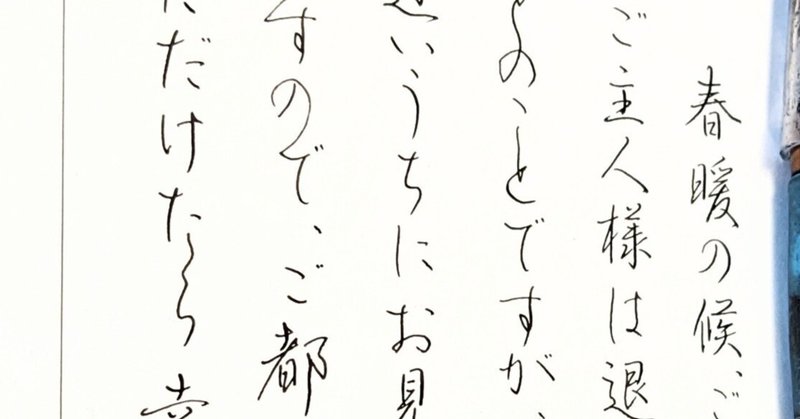 春暖の候、ご
ご主人様は退
とのことですが、
近いうちにお見
すので、ご都
ただけたら幸